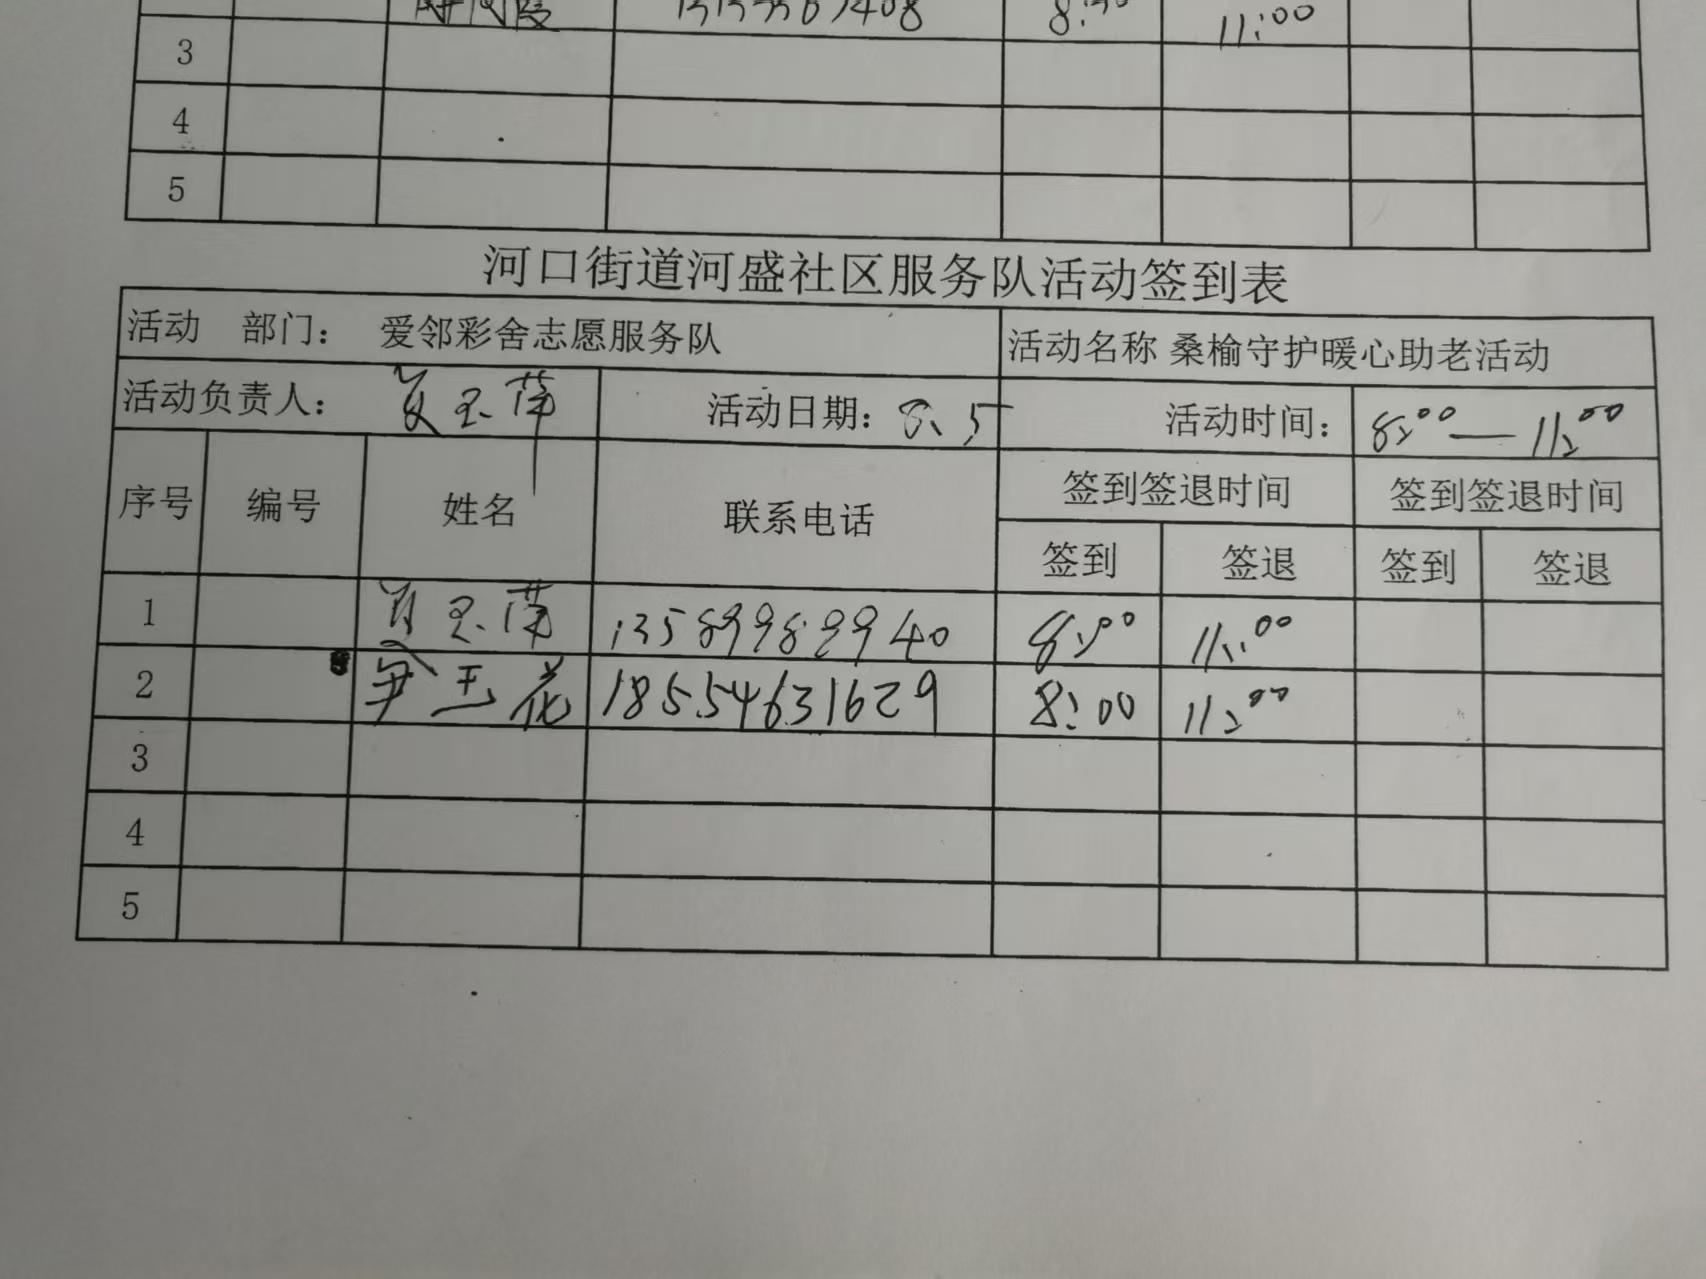 8:30 11:00
3
4
5
河口街道河盛社区服务队活动签到表
活动 部门： 爱邻彩舍志愿服务队 活动名称 桑榆守护暖心助老活动
活动负责人： 活动日期：8.5 活动时间： 8:00—11:00
序号 编号 姓名 联系电话 签到签退时间 签到签退时间
签到 签退 签到 签退
1 13589989940 8:00 11:00
2 尹玉花 18554631629 8:00 11:00
3
4
5